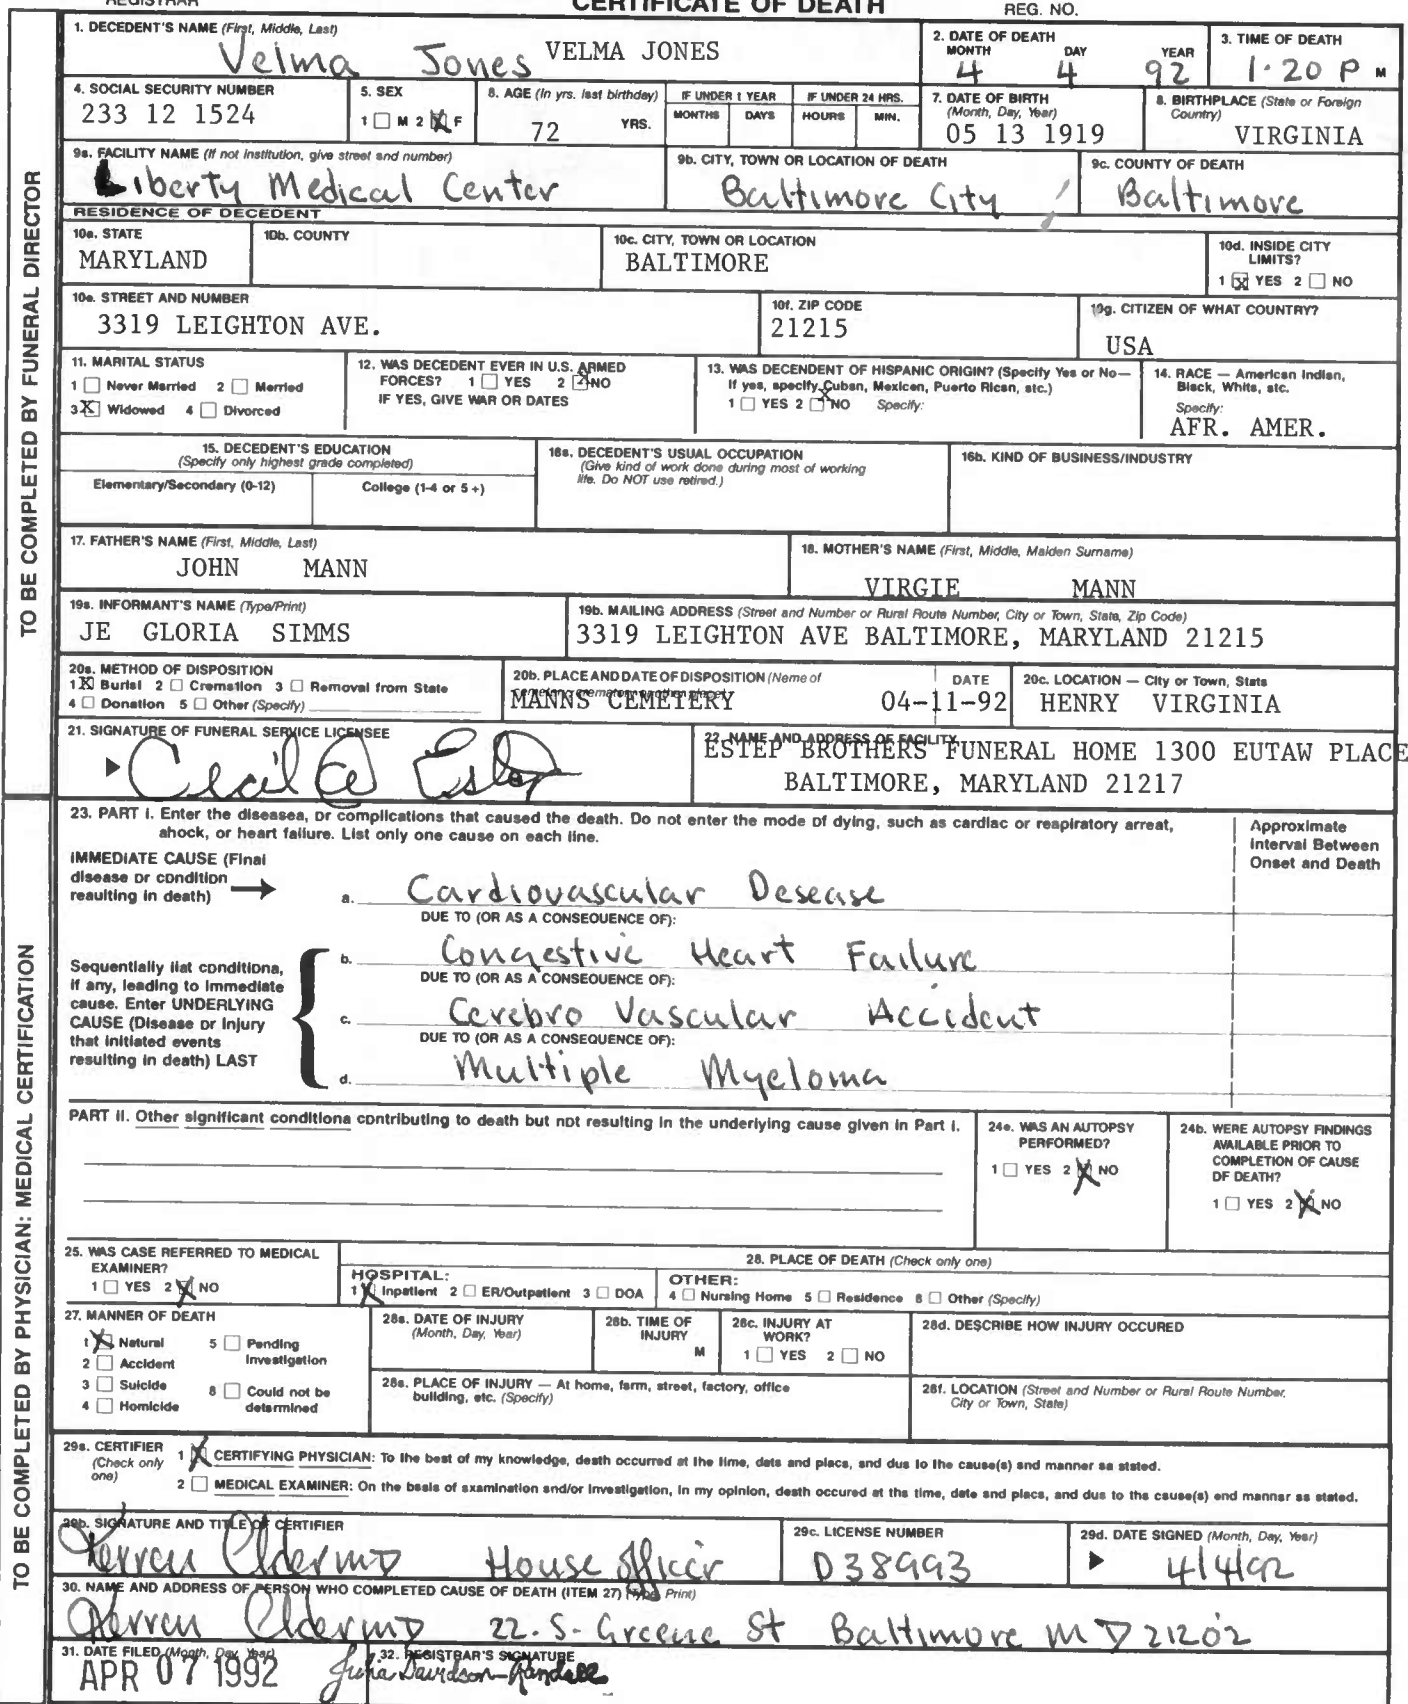 REGISTRAR CERTIFICATE OF DEATH REG. NO.
TO BE COMPLETED BY FUNERAL DIRECTOR
1. DECEDENT'S NAME (First, Middle, Last)
Velma Jones VELMA JONES
2. DATE OF DEATH
MONTH DAY YEAR
4 4 92
3. TIME OF DEATH
1:20 P M
4. SOCIAL SECURITY NUMBER
233 12 1524
5. SEX
1 ☐ M 2 ☒ F
6. AGE (In yrs. last birthday)
72 YRS.
IF UNDER 1 YEAR
MONTHS DAYS
IF UNDER 24 HRS.
HOURS MIN.
7. DATE OF BIRTH
(Month, Day, Year)
05 13 1919
8. BIRTHPLACE (State or Foreign
Country)
VIRGINIA
9a. FACILITY NAME (If not institution, give street and number)
Liberty Medical Center
9b. CITY, TOWN OR LOCATION OF DEATH
Baltimore City
9c. COUNTY OF DEATH
Baltimore
RESIDENCE OF DECEDENT
10a. STATE
MARYLAND
10b. COUNTY
10c. CITY, TOWN OR LOCATION
BALTIMORE
10d. INSIDE CITY
LIMITS?
1 ☒ YES 2 ☐ NO
10e. STREET AND NUMBER
3319 LEIGHTON AVE.
10f. ZIP CODE
21215
10g. CITIZEN OF WHAT COUNTRY?
USA
11. MARITAL STATUS
1 ☐ Never Married 2 ☐ Married
3 ☒ Widowed 4 ☐ Divorced
12. WAS DECEDENT EVER IN U.S. ARMED
FORCES? 1 ☐ YES 2 ☒ NO
IF YES, GIVE WAR OR DATES
13. WAS DECENDENT OF HISPANIC ORIGIN? (Specify Yes or No—
If yes, specify Cuban, Mexican, Puerto Rican, etc.)
1 ☐ YES 2 ☒ NO Specify:
14. RACE — American Indian,
Black, White, etc.
Specify:
AFR. AMER.
15. DECEDENT'S EDUCATION
(Specify only highest grade completed)
Elementary/Secondary (0-12) College (1-4 or 5+)
16a. DECEDENT'S USUAL OCCUPATION
(Give kind of work done during most of working
life. Do NOT use retired.)
16b. KIND OF BUSINESS/INDUSTRY
17. FATHER'S NAME (First, Middle, Last)
JOHN MANN
18. MOTHER'S NAME (First, Middle, Maiden Surname)
VIRGIE MANN
19a. INFORMANT'S NAME (Type/Print)
JE GLORIA SIMMS
19b. MAILING ADDRESS (Street and Number or Rural Route Number, City or Town, State, Zip Code)
3319 LEIGHTON AVE BALTIMORE, MARYLAND 21215
20a. METHOD OF DISPOSITION
1 ☒ Burial 2 ☐ Cremation 3 ☐ Removal from State
4 ☐ Donation 5 ☐ Other (Specify)
20b. PLACE AND DATE OF DISPOSITION (Name of
cemetery, crematory or other place) DATE
MANNS CEMETERY 04-11-92
20c. LOCATION — City or Town, State
HENRY VIRGINIA
21. SIGNATURE OF FUNERAL SERVICE LICENSEE
Cecil Estep
22. NAME AND ADDRESS OF FACILITY
ESTEP BROTHERS FUNERAL HOME 1300 EUTAW PLACE
BALTIMORE, MARYLAND 21217
TO BE COMPLETED BY PHYSICIAN: MEDICAL CERTIFICATION
23. PART I. Enter the diseases, or complications that caused the death. Do not enter the mode of dying, such as cardiac or respiratory arrest,
shock, or heart failure. List only one cause on each line.
Approximate
Interval Between
Onset and Death
IMMEDIATE CAUSE (Final
disease or condition
resulting in death) →
a. Cardiovascular Desease
DUE TO (OR AS A CONSEQUENCE OF):
Sequentially list conditions,
if any, leading to immediate
cause. Enter UNDERLYING
CAUSE (Disease or injury
that initiated events
resulting in death) LAST
b. Congestive Heart Failure
DUE TO (OR AS A CONSEQUENCE OF):
c. Cerebro Vascular Accident
DUE TO (OR AS A CONSEQUENCE OF):
d. Multiple Myeloma
PART II. Other significant conditions contributing to death but not resulting in the underlying cause given in Part I.
24a. WAS AN AUTOPSY
PERFORMED?
1 ☐ YES 2 ☒ NO
24b. WERE AUTOPSY FINDINGS
AVAILABLE PRIOR TO
COMPLETION OF CAUSE
OF DEATH?
1 ☐ YES 2 ☒ NO
25. WAS CASE REFERRED TO MEDICAL
EXAMINER?
1 ☐ YES 2 ☒ NO
26. PLACE OF DEATH (Check only one)
HOSPITAL:
1 ☒ Inpatient 2 ☐ ER/Outpatient 3 ☐ DOA
OTHER:
4 ☐ Nursing Home 5 ☐ Residence 6 ☐ Other (Specify)
27. MANNER OF DEATH
1 ☒ Natural 5 ☐ Pending
Investigation
2 ☐ Accident
3 ☐ Suicide 6 ☐ Could not be
determined
4 ☐ Homicide
28a. DATE OF INJURY
(Month, Day, Year)
28b. TIME OF
INJURY
M
28c. INJURY AT
WORK?
1 ☐ YES 2 ☐ NO
28d. DESCRIBE HOW INJURY OCCURED
28e. PLACE OF INJURY — At home, farm, street, factory, office
building, etc. (Specify)
28f. LOCATION (Street and Number or Rural Route Number,
City or Town, State)
29a. CERTIFIER
(Check only
one)
1 ☒ CERTIFYING PHYSICIAN: To the best of my knowledge, death occurred at the time, date and place, and due to the cause(s) and manner as stated.
2 ☐ MEDICAL EXAMINER: On the basis of examination and/or investigation, in my opinion, death occured at the time, date and place, and due to the cause(s) and manner as stated.
29b. SIGNATURE AND TITLE OF CERTIFIER
House officer
29c. LICENSE NUMBER
D38993
29d. DATE SIGNED (Month, Day, Year)
4/4/92
30. NAME AND ADDRESS OF PERSON WHO COMPLETED CAUSE OF DEATH (ITEM 27) (Type, Print)
22. S. Greene St Baltimore MD 21202
31. DATE FILED (Month, Day, Year)
APR 07 1992
32. REGISTRAR'S SIGNATURE
Julia Davidson-Randall